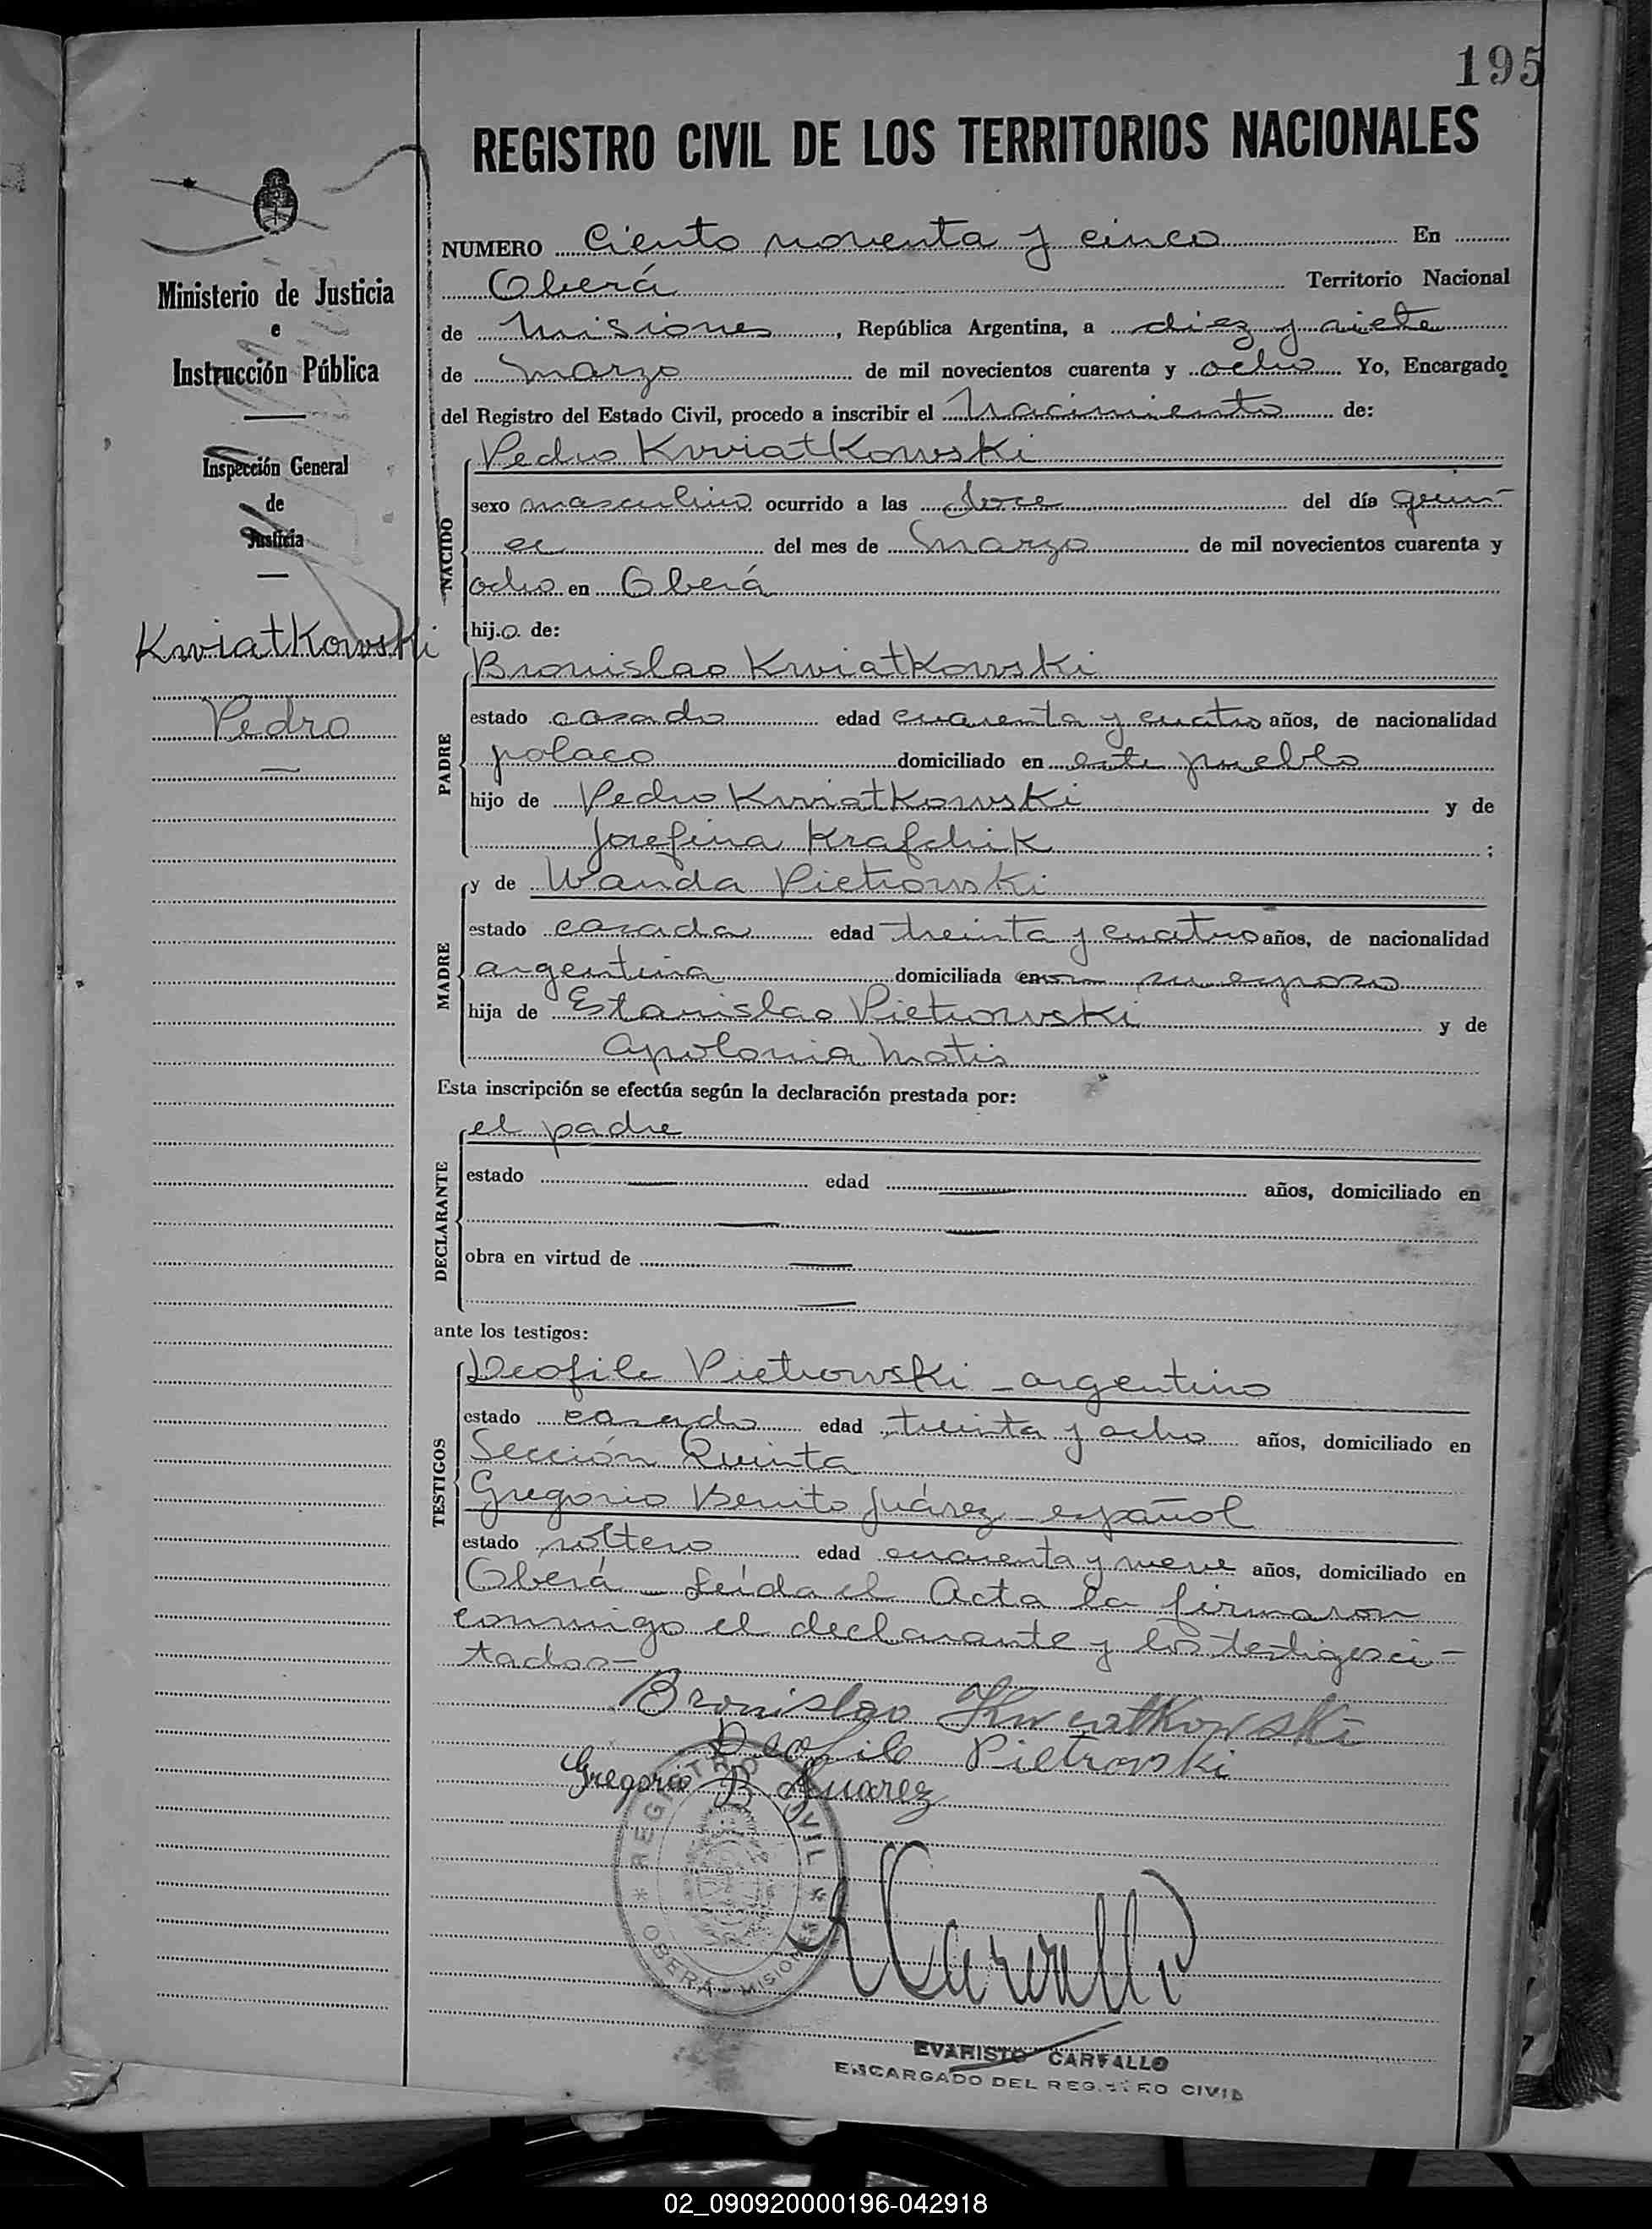 195
REGISTRO CIVIL DE LOS TERRITORIOS NACIONALES
Ministerio de Justicia
e
Instrucción Pública
Inspección General
de
Justicia
Kwiatkowski
Pedro
NUMERO Ciento noventa y cinco En
Oberá Territorio Nacional
de Misiones, República Argentina, a diez y siete
de Marzo de mil novecientos cuarenta y ocho Yo, Encargado
del Registro del Estado Civil, procedo a inscribir el Nacimiento de:
NACIDO
Pedro Kwiatkowski
sexo masculino ocurrido a las doce del día quin-
ce del mes de Marzo de mil novecientos cuarenta y
ocho en Oberá
hij.o de:
PADRE
Bronislao Kwiatkowski
estado casado edad cuarenta y cuatro años, de nacionalidad
polaco domiciliado en este pueblo
hijo de Pedro Kwiatkowski y de
Josefina Krafchik ;
MADRE
y de Wanda Pietrowski
estado casada edad treinta y cuatro años, de nacionalidad
argentina domiciliada en su esposo
hija de Estanislao Pietrowski y de
Apolonia Matis
Esta inscripción se efectúa según la declaración prestada por:
DECLARANTE
el padre
estado — edad — años, domiciliado en
— —
obra en virtud de —
—
ante los testigos:
TESTIGOS
Deofilo Pietrowski - argentino
estado casado edad treinta y ocho años, domiciliado en
Sección Quinta
Gregorio Benito Juárez - español
estado soltero edad cuarenta y nueve años, domiciliado en
Oberá - Leída el Acta la firmaron
conmigo el declarante y los testigos ci-
tados-
Bronislao Kwiatkowski
Deofilo Pietrowski
Gregorio B Juarez
REGISTRO CIVIL
* OBERÁ - MISIONES *
Carvallo
EVARISTO CARVALLO
ENCARGADO DEL REGISTRO CIVIL
02_090920000196-042918